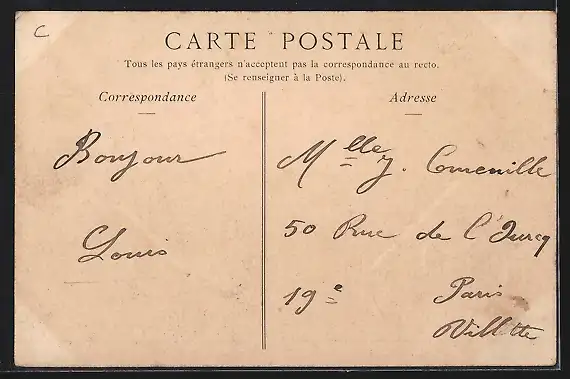 C
CARTE POSTALE
Tous les pays étrangers n'acceptent pas la correspondance au recto.
(Se renseigner à la Poste).
Correspondance
Adresse
Bonjour
Louis
Mlle J. Corneville
50 Rue de l'Ourcq
19e Paris
Villette